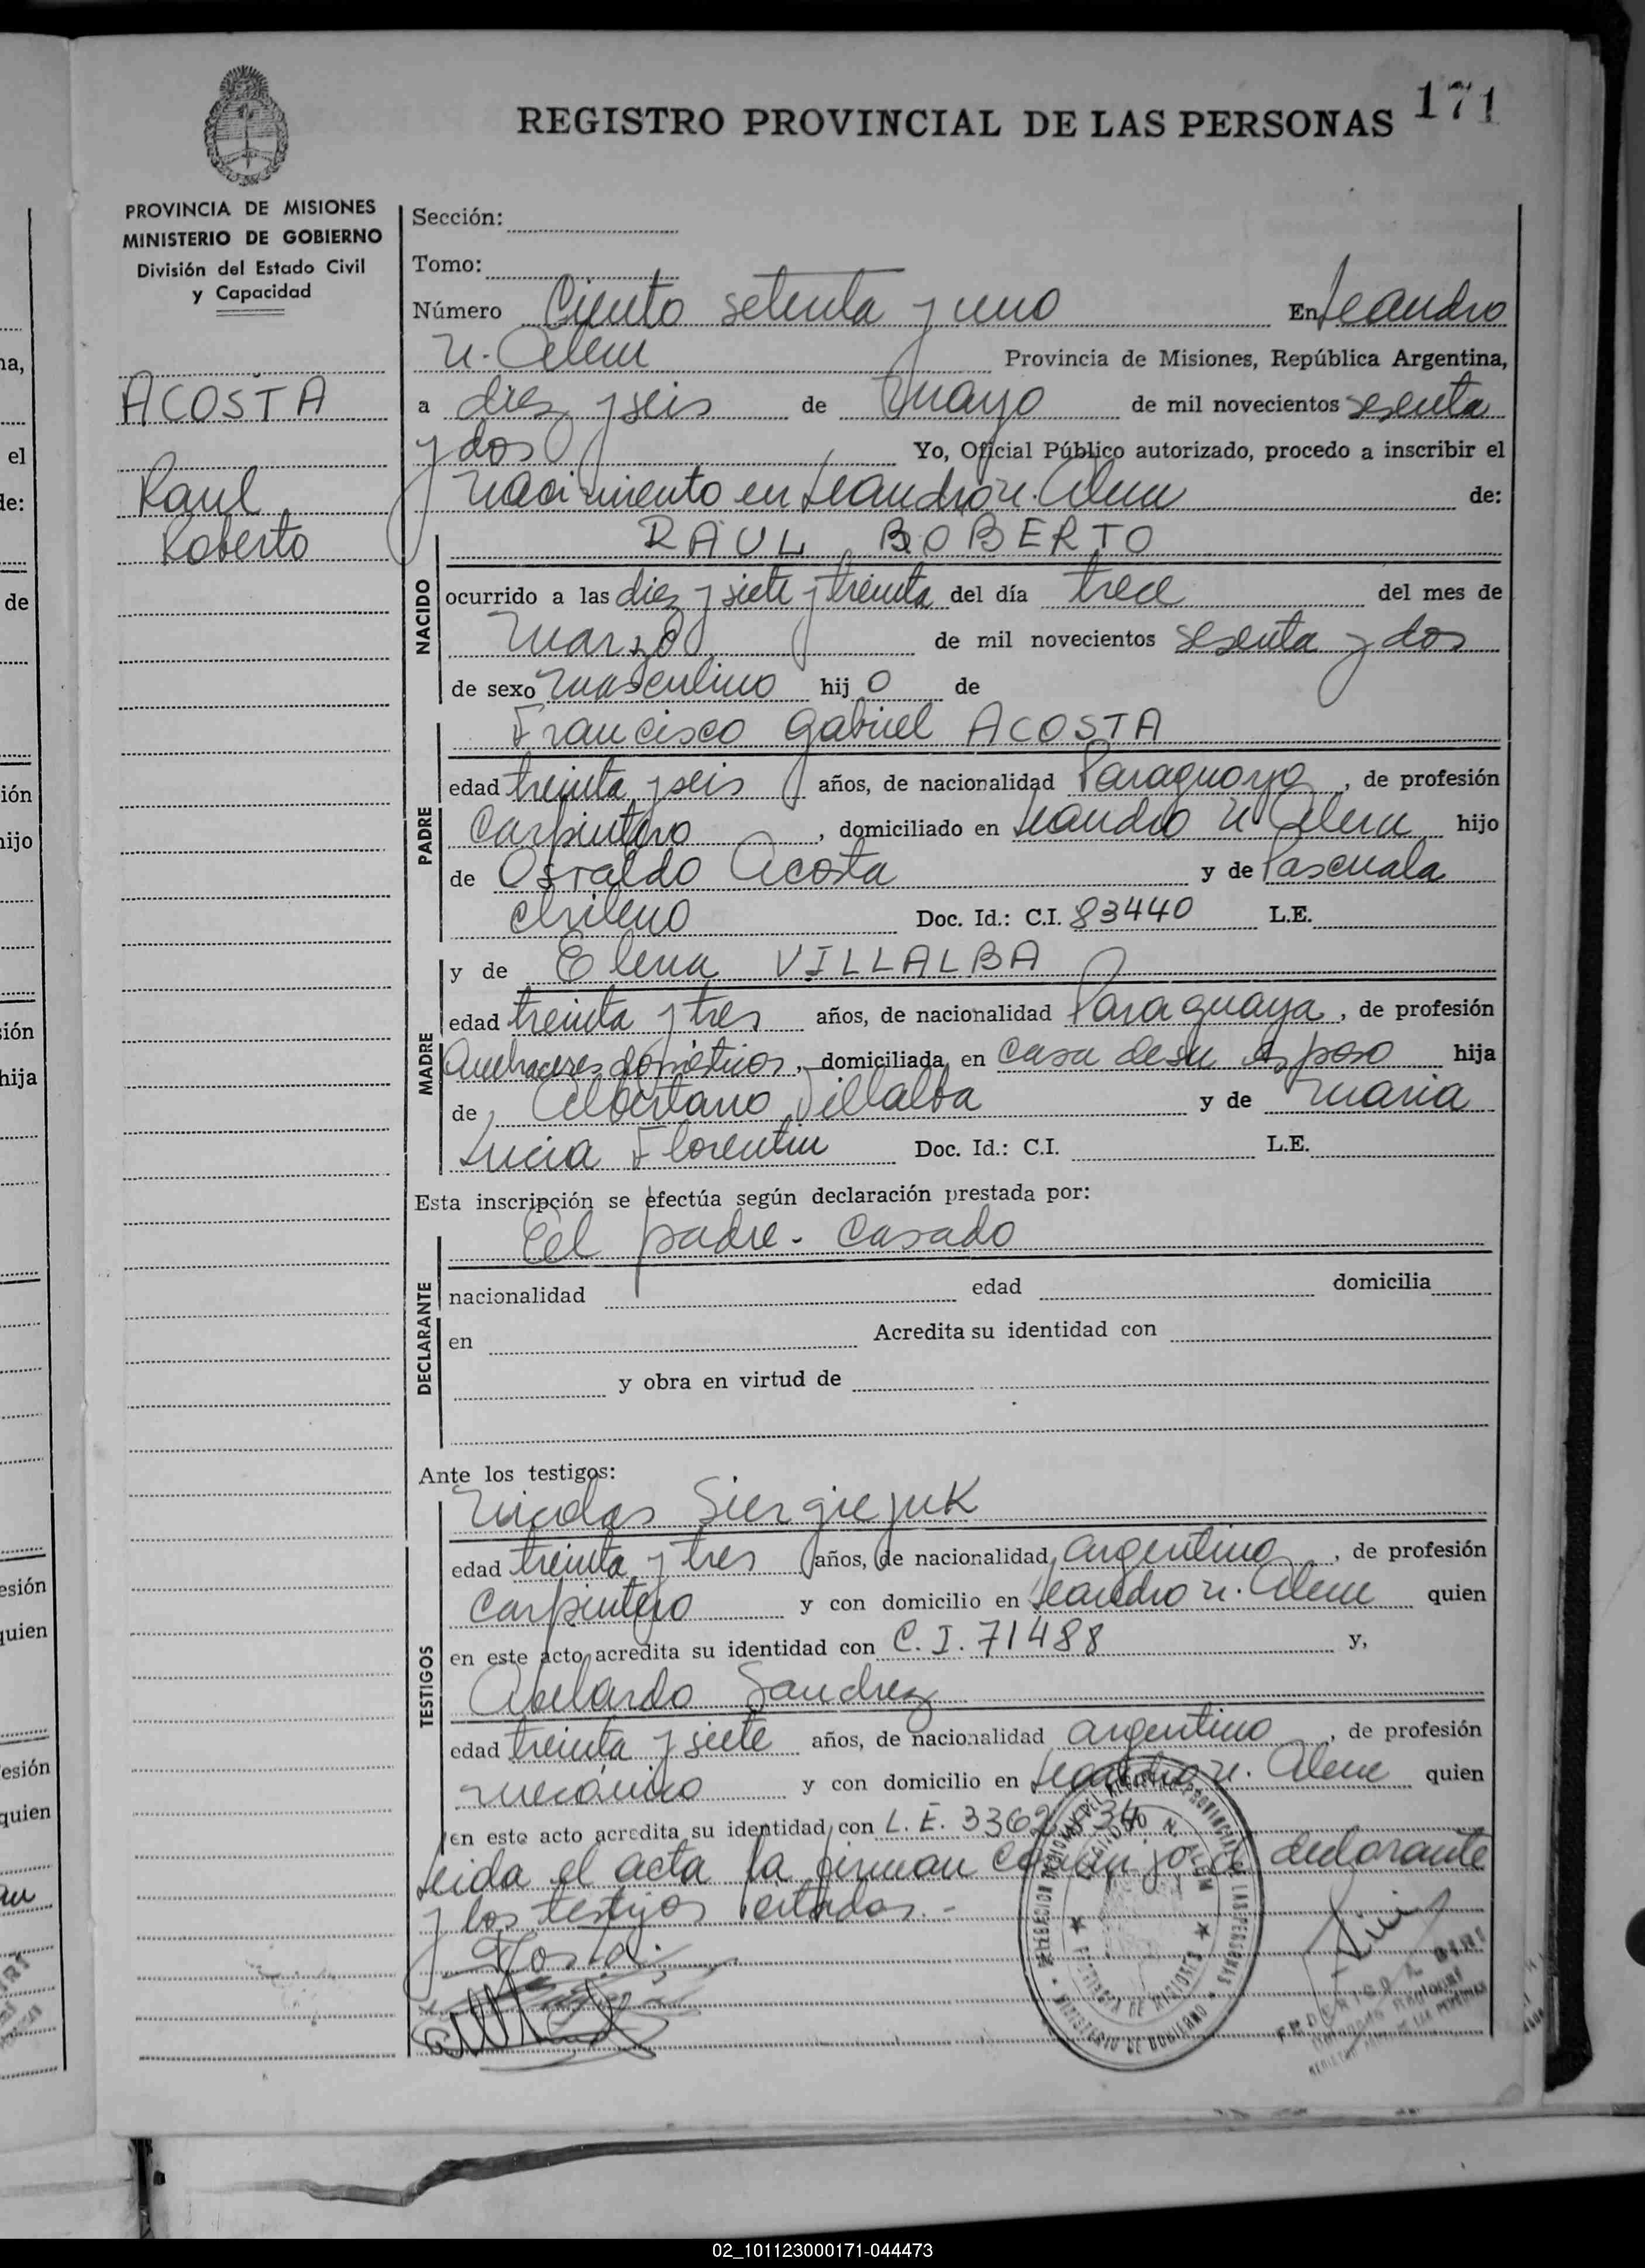 171
REGISTRO PROVINCIAL DE LAS PERSONAS
PROVINCIA DE MISIONES
MINISTERIO DE GOBIERNO
División del Estado Civil
y Capacidad
ACOSTA
Raul
Roberto
Sección:
Tomo:
Número Ciento setenta y uno En Leandro
N. Alem Provincia de Misiones, República Argentina,
a diez y seis de Mayo de mil novecientos sesenta
y dos Yo, Oficial Público autorizado, procedo a inscribir el
Nacimiento en Leandro N. Alem de:
NACIDO
RAUL ROBERTO
ocurrido a las diez y siete y treinta del día trece del mes de
Marzo de mil novecientos sesenta y dos
de sexo Masculino hij o de
PADRE
Francisco Gabriel ACOSTA
edad treinta y seis años, de nacionalidad Paraguaya, de profesión
Carpintero, domiciliado en Leandro N Alem hijo
de Osvaldo Acosta y de Pascuala
Chileno Doc. Id.: C.I. 83440 L.E.
MADRE
y de Elena VILLALBA
edad treinta y tres años, de nacionalidad Paraguaya, de profesión
Quehaceres domésticos, domiciliada en casa de su esposo hija
de Albertano Villalba y de Maria
Lucia Florentin Doc. Id.: C.I. L.E.
Esta inscripción se efectúa según declaración prestada por:
DECLARANTE
El padre - casado
nacionalidad edad domicilia
en Acredita su identidad con
y obra en virtud de
Ante los testigos:
TESTIGOS
Nicolas Siergiejuk
edad treinta y tres años, de nacionalidad argentino, de profesión
Carpintero y con domicilio en Leandro N. Alem quien
en este acto acredita su identidad con C. I. 71488 y,
Abelardo Sanchez
edad treinta y siete años, de nacionalidad argentino, de profesión
mecánico y con domicilio en Leandro N. Alem quien
en este acto acredita su identidad con L. E. 3362
Leida el acta la firman conmigo el declarante
y los testigos citados.-
MINISTERIO DE GOBIERNO
PROVINCIA DE MISIONES
02_101123000171-044473